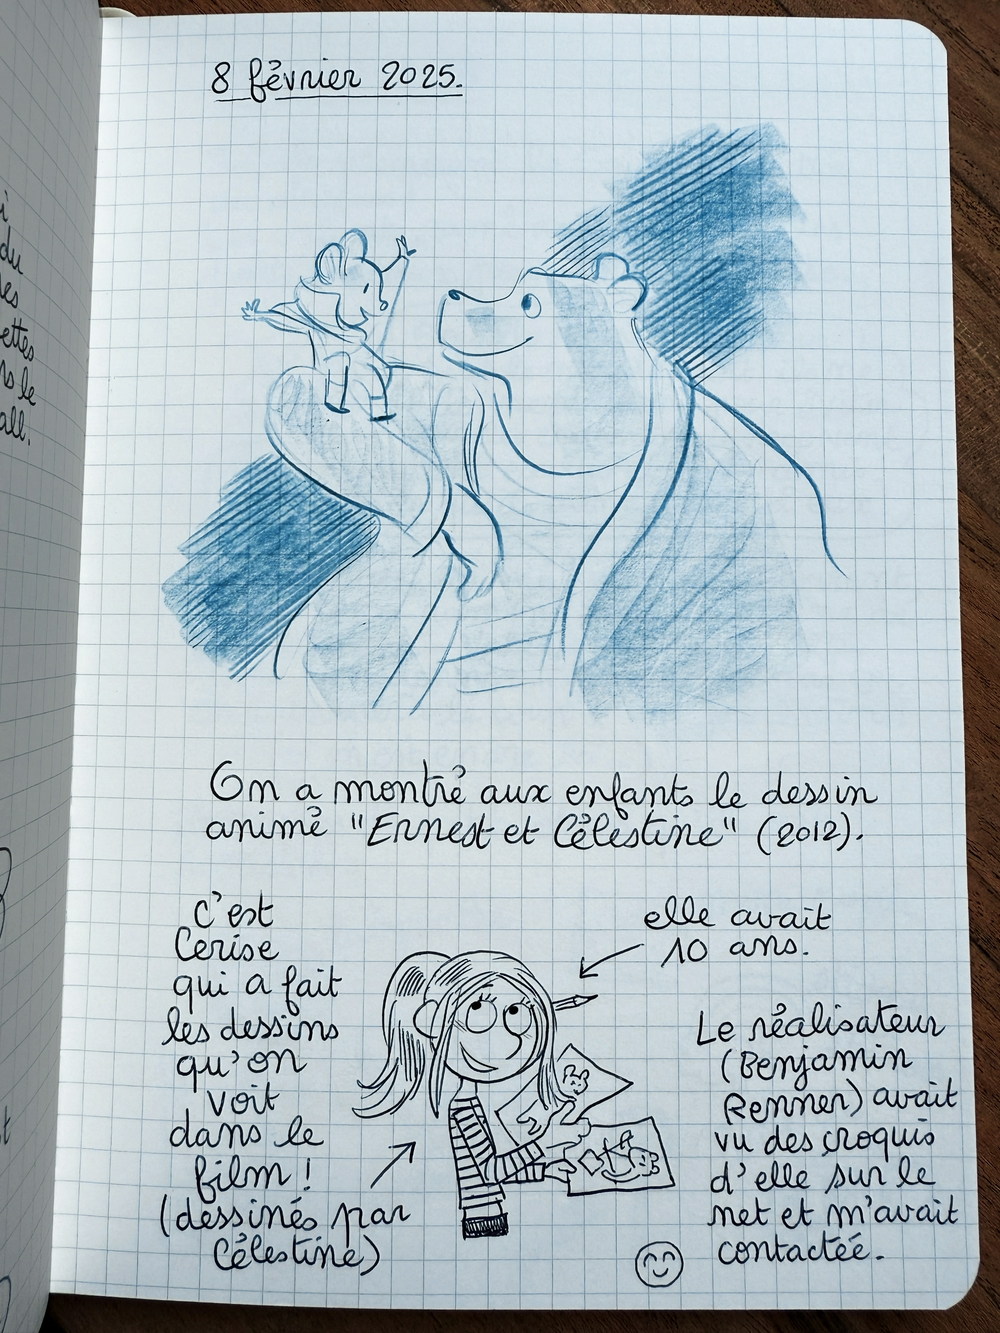 8 février 2025.
On a montré aux enfants le dessin
animé "Ernest et Célestine" (2012).
C'est
Cerise
qui a fait
les dessins
qu'on
voit
dans le
film !
(dessinés par
Célestine)
elle avait
10 ans.
Le réalisateur
(Benjamin
Renner) avait
vu des croquis
d'elle sur le
net et m'avait
contactée.
du
ettes
le
all.